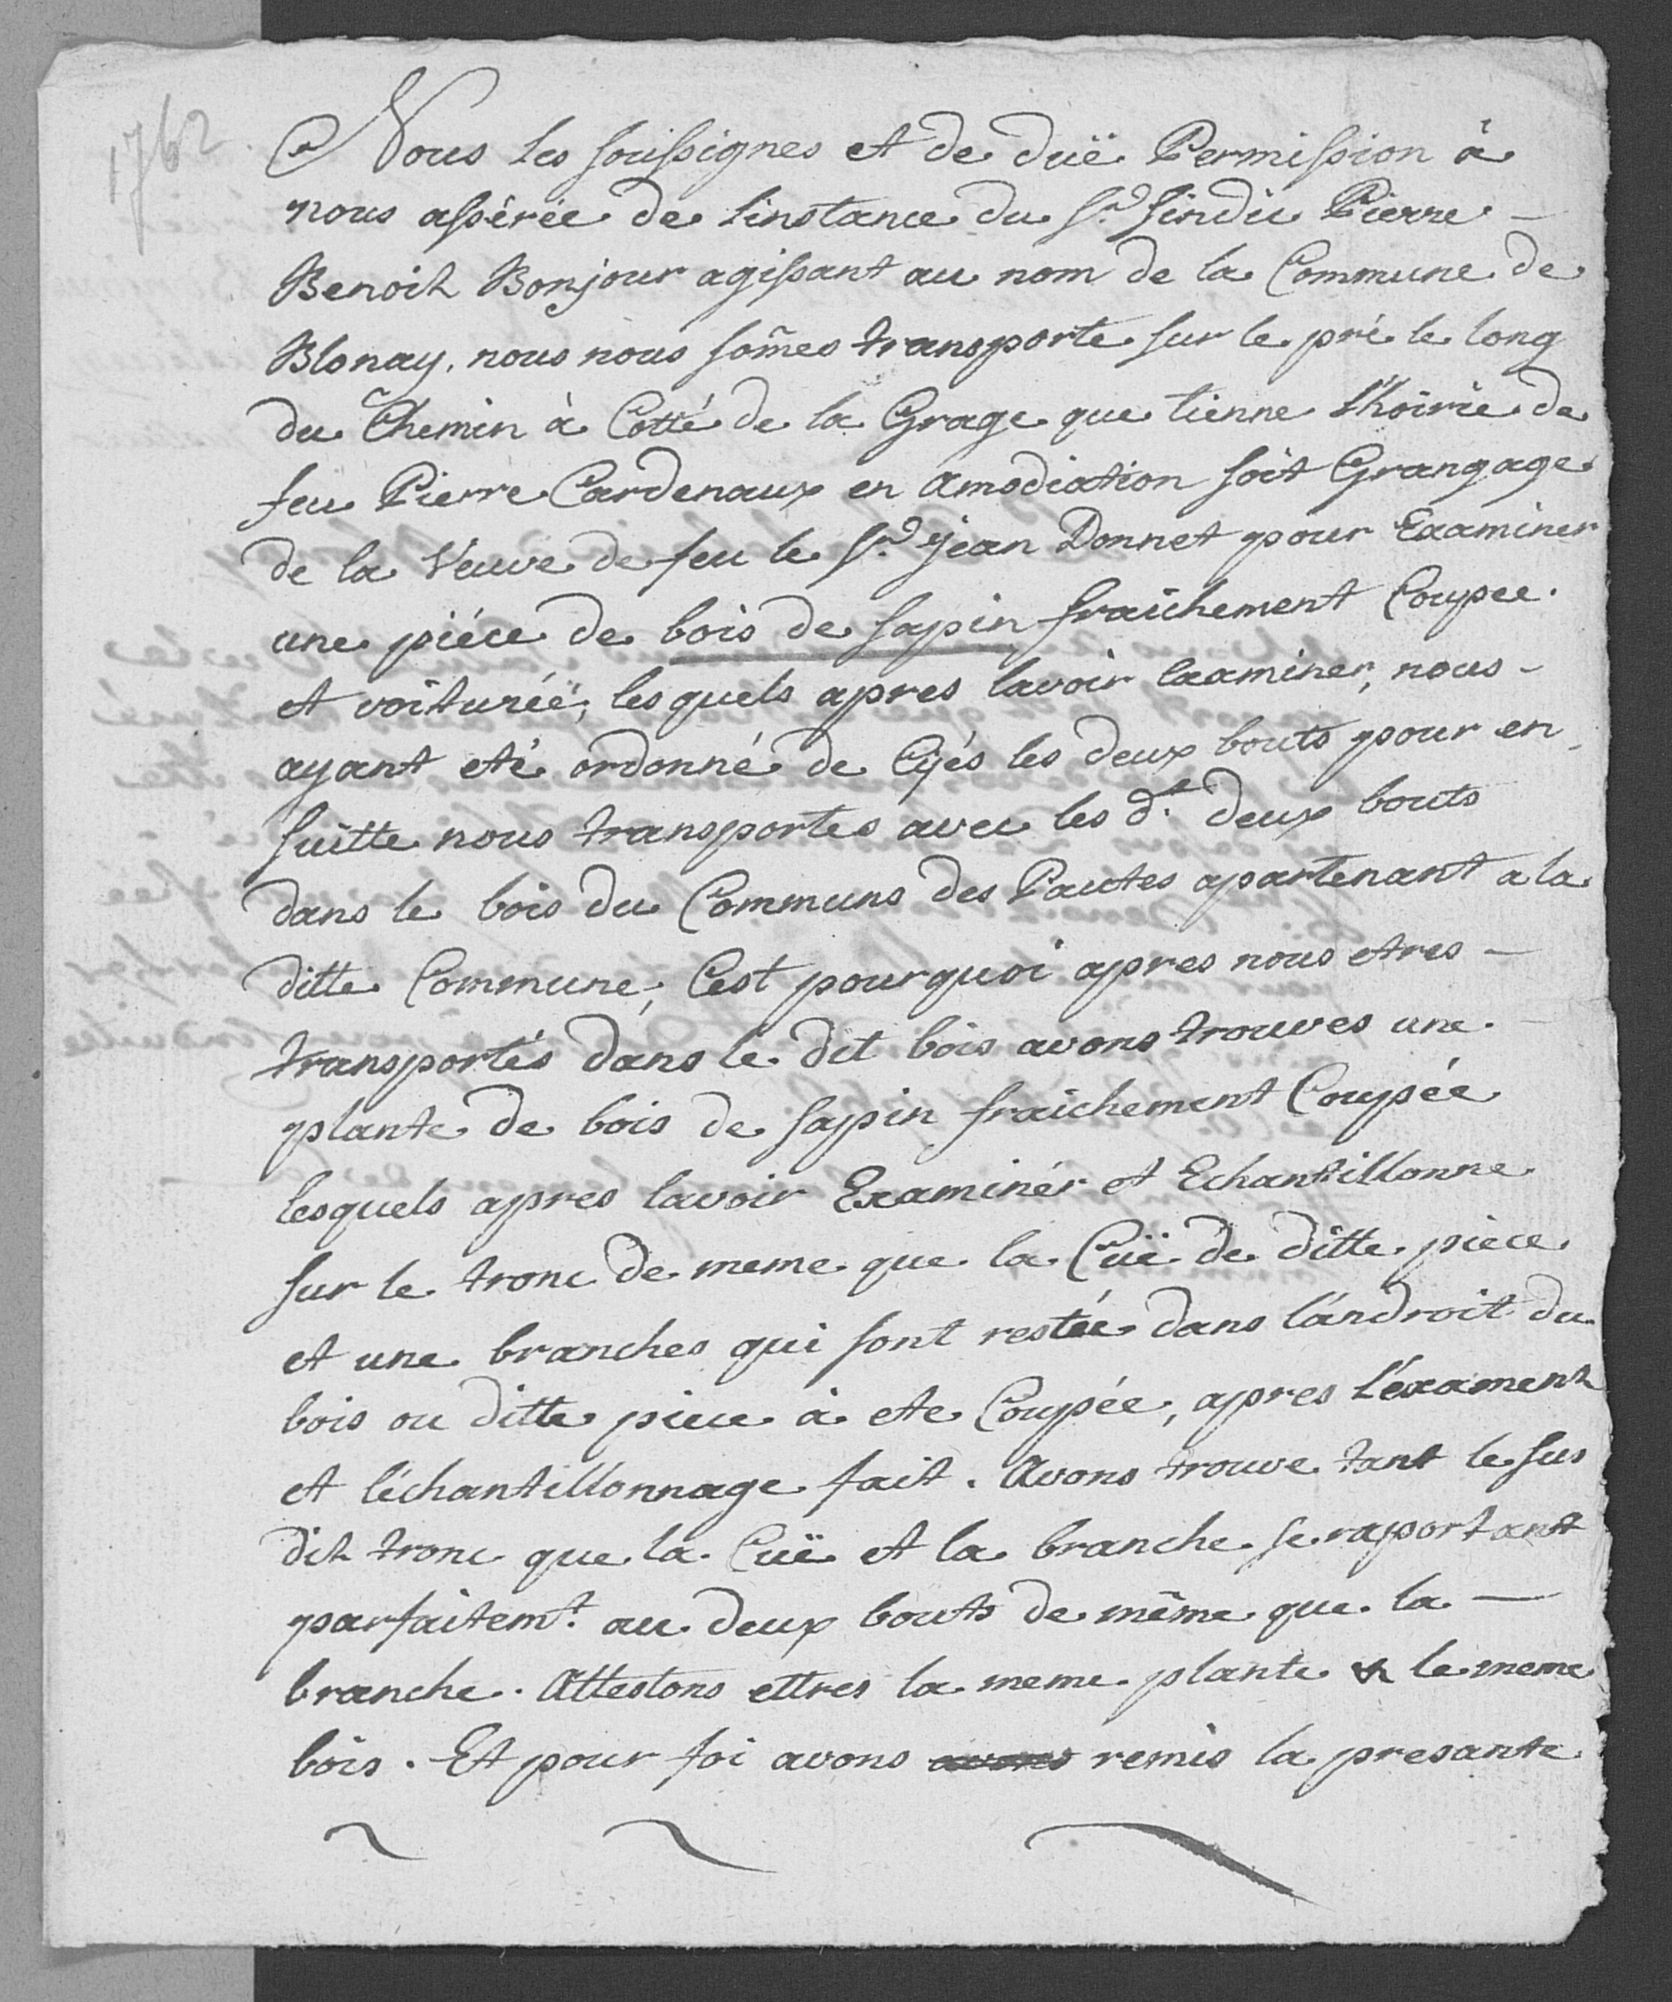 1762.
Nous les soussignes et de duë Permission à
nous assérée de linstance du Sr. Sindic Pierre
Benoit Bonjour agissant au nom de la Commune de
Blonay, nous nous som̃es transporte sur le pré le long
du Chemin à Cotté de la Grage que tienne l'hoirie de
feu Pierre Cardenaux en Amodiation soit Grangage
de la Veuve de feu le Sr. jean Donnet pour Examiner
une piéce de bois de sapin fraichement Coupee
et voituréé, lesquels apres lavoir Examiner, nous
ayant eté ordonné de les deux bouts pour en
suitte nous transportes avec les dt. deux bouts
dans le bois du Communs des Pautes apartenant a la
ditte Commune, Cest pourquoi apres nous etres
transportés dans le dit bois avons trouves une
plante de bois de sapin fraichement Coupée
lesquels apres lavoir Examinér et Echantillonne
sur le tronc de meme que la Cuë de ditte piece
et une branches qui sont restée dans lándroit du
bois ou ditte piece à ete Coupée, apres l'exament
et léchantillonnage fait. Avons trouve tant le sus
dit tronc que la Cuë et la branche se raportant
parfaitemt. au deux bouts de même que la
branche. Attestons ettres la meme plante & le meme
bois. Et pour foi avons avons remis la presante